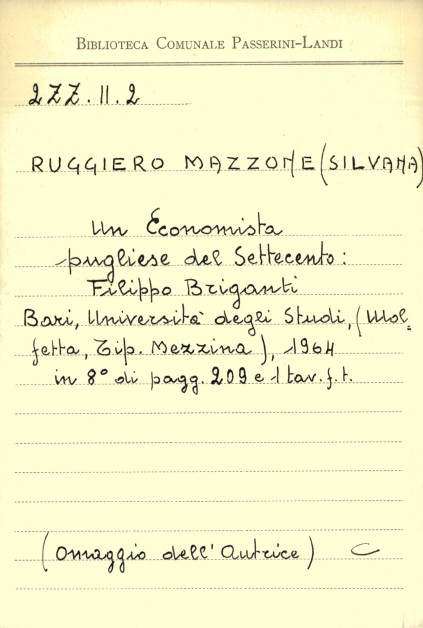 BIBLIOTECA COMUNALE PASSERINI-LANDI
2ZZ.II.2
RUGGIERO MAZZONE (SILVANA)
Un Economista
pugliese del Settecento:
Filippo Briganti
Bari, Università degli Studi, (Mol=
fetta, Tip. Mezzina), 1964
in 8° di pagg. 209 e 1 tav. f. t.
(Omaggio dell'Autrice) C